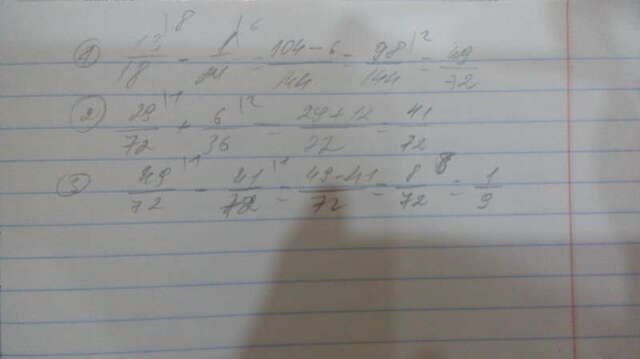 1) 13/18 |8 - 1/24 |6 = 104-6/144 = 98/144 |2 = 49/72
2) 29/72 |1 + 6/36 |2 = 29+12/72 = 41/72
3) 49/72 |1 - 41/72 |1 = 49-41/72 = 8/72 |8 = 1/9